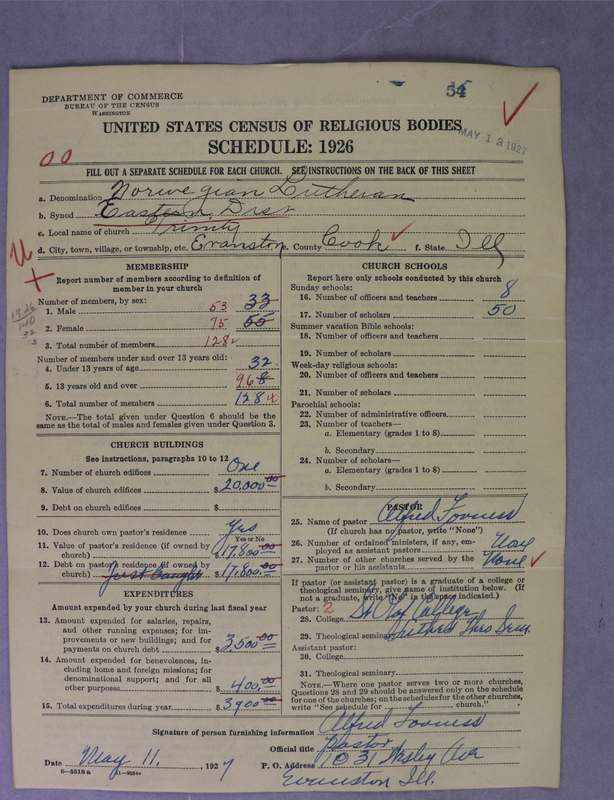 54
DEPARTMENT OF COMMERCE
BUREAU OF THE CENSUS
WASHINGTON
UNITED STATES CENSUS OF RELIGIOUS BODIES
MAY 13 1927
SCHEDULE: 1926
FILL OUT A SEPARATE SCHEDULE FOR EACH CHURCH. SEE INSTRUCTIONS ON THE BACK OF THIS SHEET
a. Denomination Norwegian Lutheran
b. Synod Eastern Dist
c. Local name of church Trinity
d. City, town, village, or township, etc. Evanston e. County Cook f. State Ill
MEMBERSHIP
Report number of members according to definition of
member in your church
Number of members, by sex:
1. Male 53 33
2. Female 75 55
3. Total number of members 128
Number of members under and over 13 years old:
4. Under 13 years of age 32
5. 13 years old and over 96
6. Total number of members 128
NOTE.—The total given under Question 6 should be the
same as the total of males and females given under Question 3.
CHURCH BUILDINGS
See instructions, paragraphs 10 to 12
7. Number of church edifices One
8. Value of church edifices $20,000.00
9. Debt on church edifices $
10. Does church own pastor's residence? Yes
Yes or No
11. Value of pastor's residence (if owned by
church) $17,800.00
12. Debt on pastor's residence (if owned by
church) Just bought $17,800.00
EXPENDITURES
Amount expended by your church during last fiscal year
13. Amount expended for salaries, repairs,
and other running expenses; for im-
provements or new buildings; and for
payments on church debt $3,500.00
14. Amount expended for benevolences, in-
cluding home and foreign missions; for
denominational support; and for all
other purposes $400.00
15. Total expenditures during year $3900.00
CHURCH SCHOOLS
Report here only schools conducted by this church
Sunday schools:
16. Number of officers and teachers 8
17. Number of scholars 50
Summer vacation Bible schools:
18. Number of officers and teachers
19. Number of scholars
Week-day religious schools:
20. Number of officers and teachers
21. Number of scholars
Parochial schools:
22. Number of administrative officers
23. Number of teachers—
a. Elementary (grades 1 to 8)
b. Secondary
24. Number of scholars—
a. Elementary (grades 1 to 8)
b. Secondary
PASTOR
25. Name of pastor Alfred
(If church has no pastor, write "None")
26. Number of ordained ministers, if any, em-
ployed as assistant pastors None
27. Number of other churches served by the
pastor or his assistants None
If pastor (or assistant pastor) is a graduate of a college or
theological seminary, give name of institution below. (If
not a graduate, write "No" in the space indicated.)
Pastor: 2
28. College St Olaf College
29. Theological seminary Luther Theo Sem.
Assistant pastor:
30. College
31. Theological seminary
NOTE.—Where one pastor serves two or more churches,
Questions 28 and 29 should be answered only on the schedule
for one of the churches; on the schedules for the other churches,
write "See schedule for church."
Signature of person furnishing information Alfred
Official title Pastor
Date May 11, 1927 P. O. Address 1031 Wesley Ave
8—5518a
Evanston Ill.